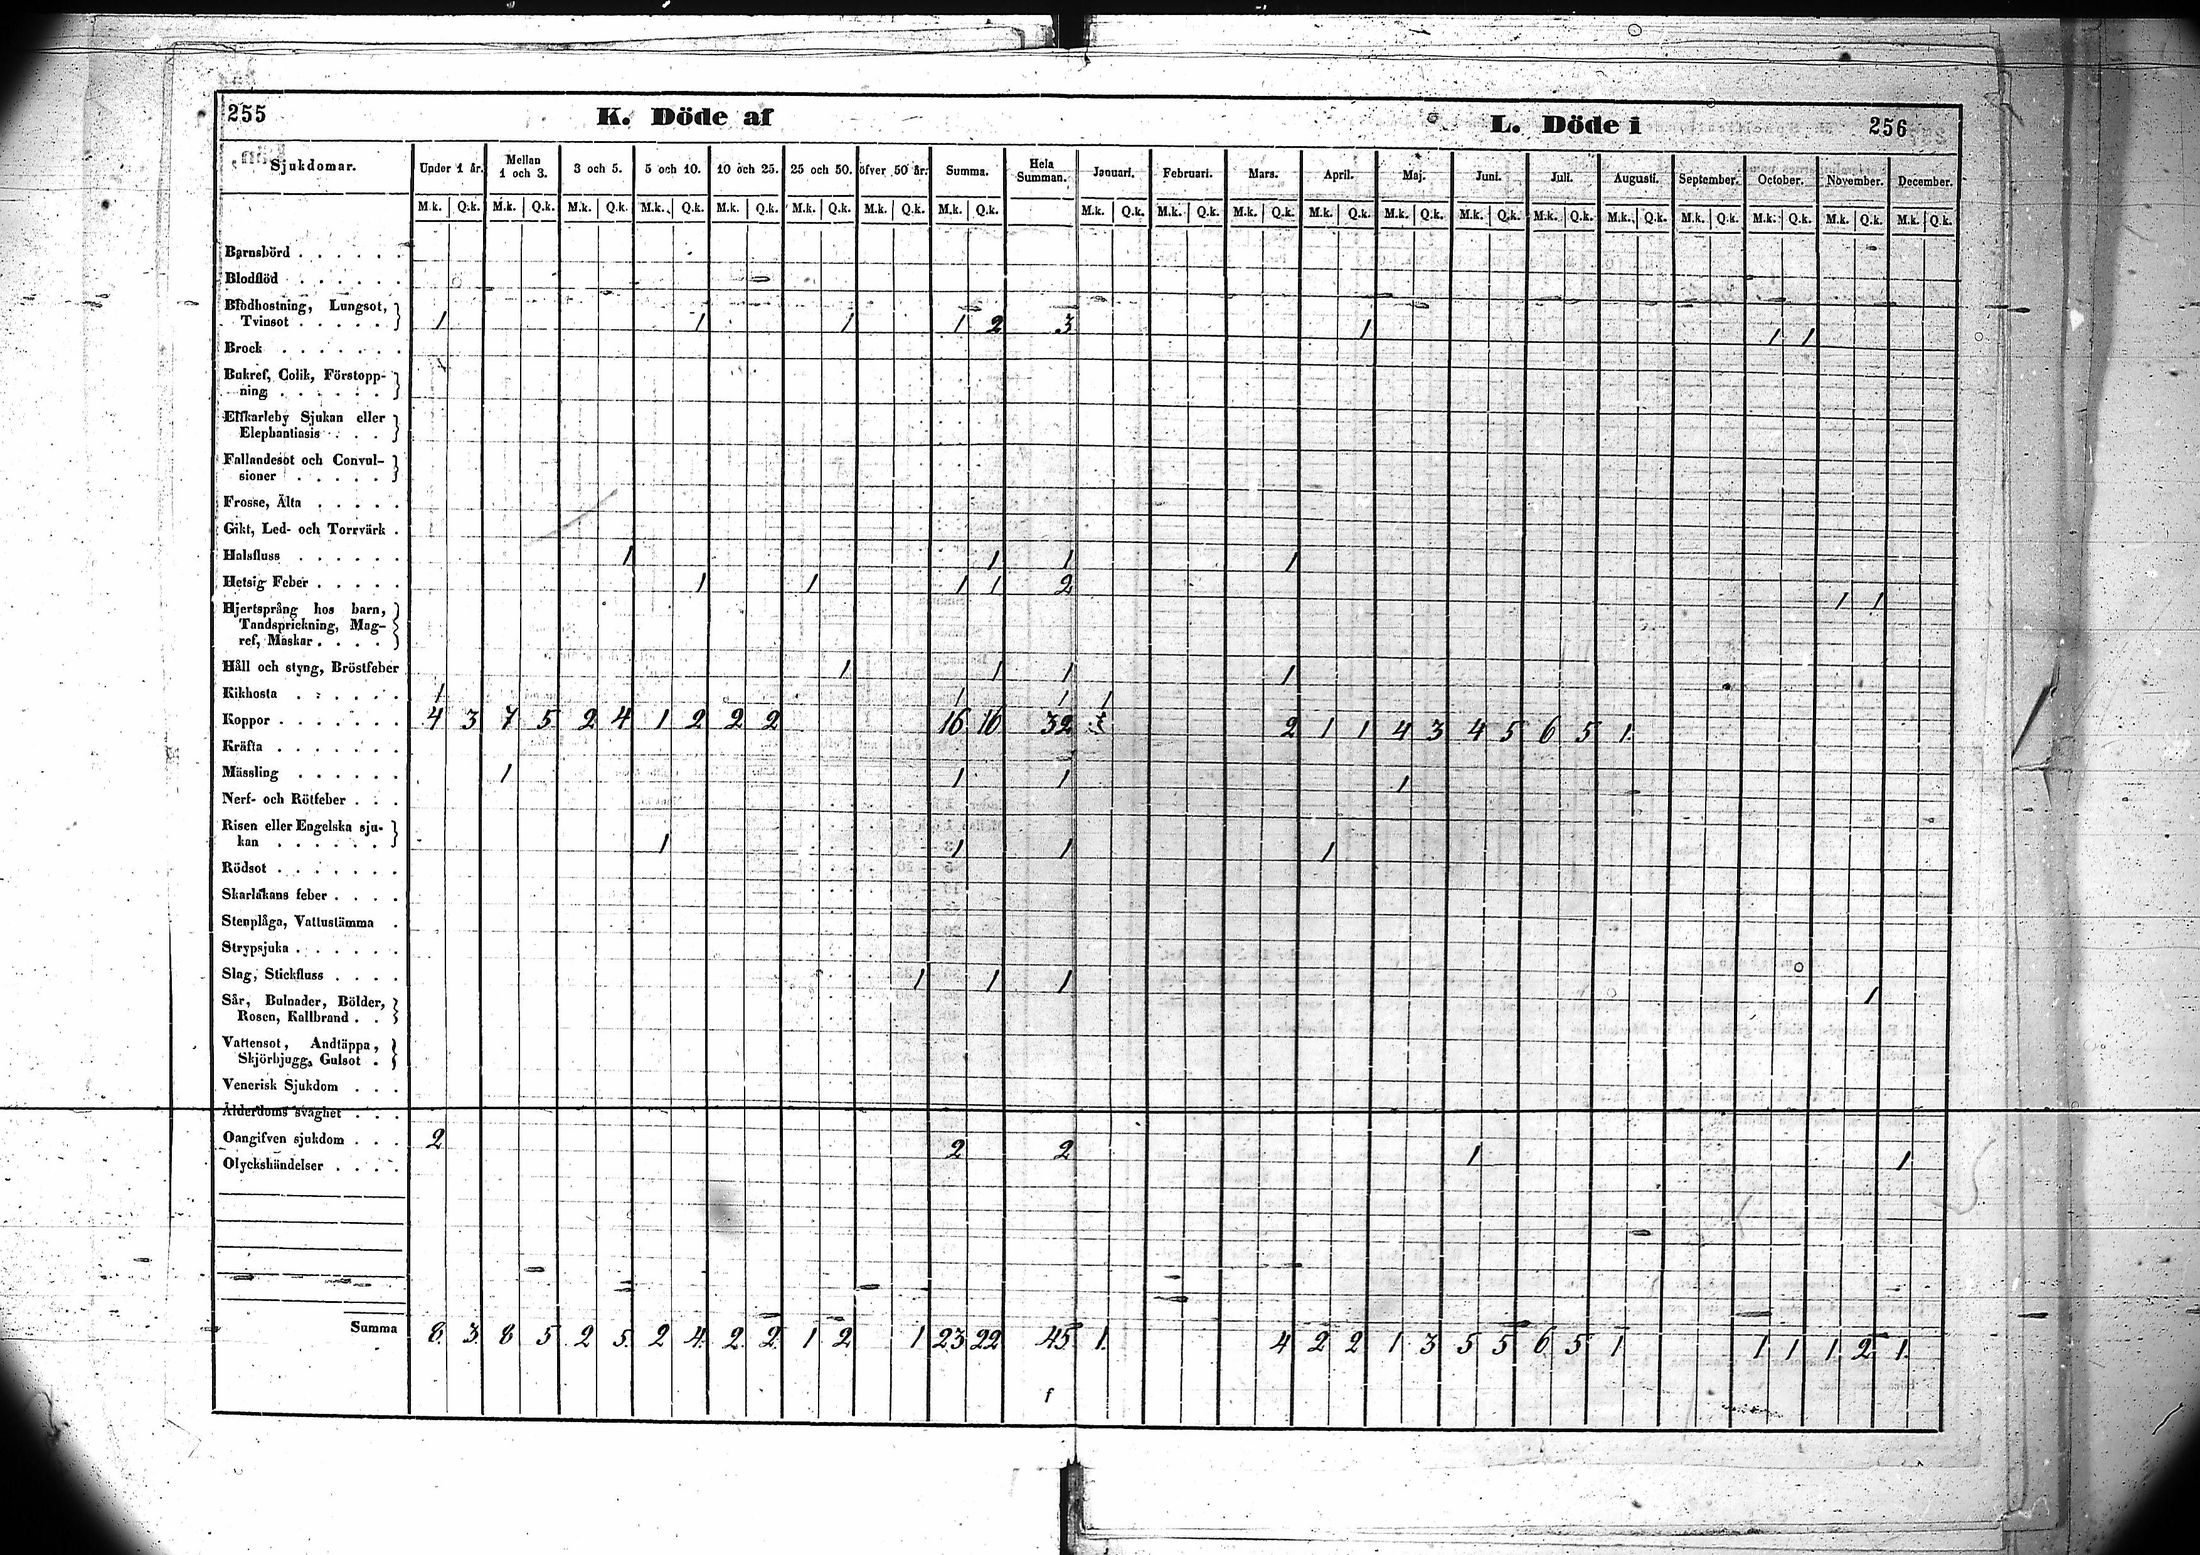 255 K. Döde af L. Döde i 256
Sjukdomar. Under 1 år. Mellan 1 och 3. 3 och 5. 5 och 10. 10 och 25. 25 och 50. öfver 50 år. Summa. Hela Summan. Januari. Februari. Mars. April. Maj. Juni. Juli. Augusti. September. October. November. December.
M.k. Q.k. M.k. Q.k. M.k. Q.k. M.k. Q.k. M.k. Q.k. M.k. Q.k. M.k. Q.k. M.k. Q.k. M.k. Q.k. M.k. Q.k. M.k. Q.k. M.k. Q.k. M.k. Q.k. M.k. Q.k. M.k. Q.k. M.k. Q.k. M.k. Q.k. M.k. Q.k. M.k. Q.k. M.k. Q.k.
Barnsbörd
Blodflöd
Blodhostning, Lungsot,
Tvinsot 1 1 1 1 2 3 1 1 1
Brock
Bukref, Colik, Förstopp-
ning
Elfkarleby Sjukan eller
Elephantiasis
Fallandesot och Convul-
sioner
Frosse, Älta
Gikt, Led- och Torrvärk
Halsfluss 1 1 1 1
Hetsig Feber 1 1 1 1 2 1 1
Hjertsprång hos barn,
Tandsprickning, Mag-
ref, Maskar
Håll och styng, Bröstfeber 1 1 1 1
Kikhosta 1 1 1 1
Koppor 4 3 7 5 2 4 1 2 2 2 16 16 32 2 1 1 4 3 4 5 6 5 1
Kräfta
Mässling 1 1 1 1
Nerf- och Rötfeber
Risen eller Engelska sju-
kan 1 1 1 1
Rödsot
Skarlakans feber
Stenplåga, Vattustämma
Strypsjuka
Slag, Stickfluss 1 1 1 1
Sår, Bulnader, Bölder,
Rosen, Kallbrand
Vattensot, Andtäppa,
Skjörbjugg, Gulsot
Venerisk Sjukdom
Ålderdoms svaghet
Oangifven sjukdom 2 2 2 1 1
Olyckshändelser
Summa 8 3 8 5 2 5 2 4 2 2 1 2 1 23 22 45 1 4 2 2 1 3 5 5 6 5 1 1 1 1 2 1